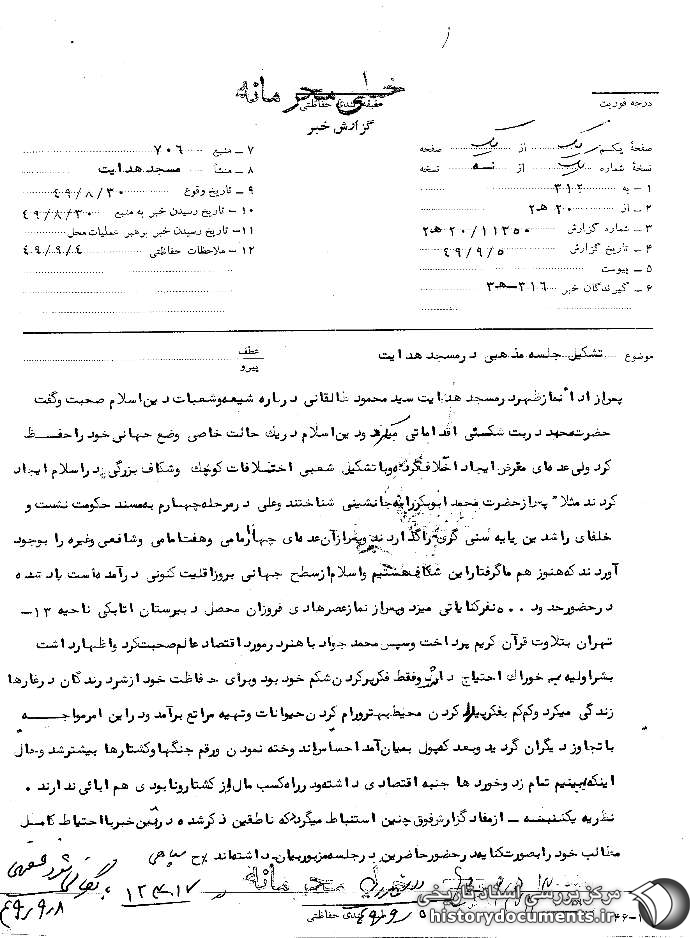 خیلی محرمانه
طبقه‌بندی حفاظتی
گزارش خبر
درجه فوریت
صفحهٔ یکم یک از یک صفحه
نسخهٔ شماره یک از سه نسخه
۱ – به ۳۱۲
۲ – از ۲۰ هـ ۲
۳ – شماره گزارش ۲۰/۱۱۲۵۰ هـ ۲
۴ – تاریخ گزارش ۴۹/۹/۵
۵ – پیوست
۶ – گیرندگان خبر ۳۱۶ – هـ ۳
۷ – منبع ۷۰۶
۸ – منشأ مسجد هدایت
۹ – تاریخ وقوع ۴۹/۸/۳۰
۱۰ – تاریخ رسیدن خبر به منبع ۴۹/۸/۳۰
۱۱ – تاریخ رسیدن خبر برهبر عملیات محل
۱۲ – ملاحظات حفاظتی ۴۹/۹/۴
موضوع تشکیل جلسه مذهبی در مسجد هدایت
عطف
پیرو
پس از ادا نماز ظهر در مسجد هدایت سید محمود طالقانی درباره شیعه و شعبات دین اسلام صحبت و گفت
حضرت محمد در بت شکستی اقداماتی میکرد و دین اسلام در یک حالت خاصی وضع جهانی خود را حفظ
کرد ولی عده‌ای مغرض ایجاد اختلاف کرده و با تشکیل شعبی اختلافات کوچک و شکاف بزرگی در اسلام ایجاد
کردند مثلا" پس از حضرت محمد ابوبکر را به جانشینی شناختند و علی در مرحله چهارم به مسند حکومت نشست و
خلفای راشدین پایه سنی گری را گذاردند و پس از آن عده‌ای چهار امامی و هفت امامی و شافعی و غیره را بوجود
آوردند که هنوز هم ما گرفتار این شکاف هستیم و اسلام از سطح جهانی بروز اقلیت کنونی درآمده است یاد شده
در حضور حدود ۵۰۰ نفر کنایاتی میزد و پس از نماز عصر هادی فروزان محصل دبیرستان اتابکی ناحیه ۱۳ –
تهران بتلاوت قرآن کریم پرداخت و سپس محمد جواد باهنر در مورد اقتصاد عالم صحبت کرد و اظهار داشت
بشر اولیه به خوراک احتیاج داشت و فقط فکر پر کردن شکم خود بود و برای حفاظت خود از شر درندگان در غارها
زندگی میکرد و کم کم بفکر پیدا کردن محیط بهتر و رام کردن حیوانات و تهیه مراتع برآمد و در این امر مواجه
با تجاوز دیگران گردید و بعد که پول بمیان آمد احساس اندوخته نمودن و رقم جنگها و کشتارها بیشتر شد و حال
اینکه ببینیم تمام زد و خوردها جنبه اقتصادی داشته و در راه کسب مال از کشتار و نابودی هم ابائی ندارند .
نظریه یکشنبه – از مفاد گزارش فوق چنین استنباط میگردد که ناطقین ذکر شده در متن خبر با احتیاط کامل
مطالب خود را بصورت کنایه در حضور حاضرین در جلسه مزبور بیان داشته‌اند
محرمانه
طبقه‌بندی حفاظتی
۴۹/۹/۸
مرکز بررسی اسناد تاریخی
historydocuments.ir